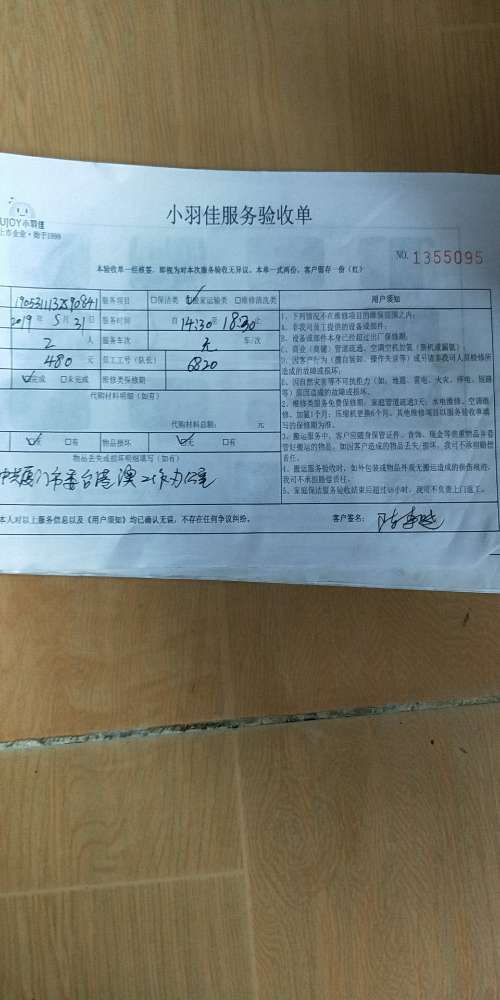 UJOY小羽佳
上市企业·始于1999
小羽佳服务验收单
NO. 1355095
本验收单一经维签，即视为对本次服务验收无异议。本单一式两份，客户留存一份（红）
服务项目 □保洁类 ☑搬家运输类 □维修清洗类
2019年5月31日 服务时间 自14:30至18:30止
2 人 服务车次 元 车/次
480 元 员工工号（队长） 6820
☑完成 □未完成 维修类保修期
代购材料明细（如有）
代购材料总额： 元
☑无 □有 物品损坏 ☑无 □有
物品丢失或损坏明细填写（如有）
中共厦门市委台港澳工作办公室
本人对以上服务信息以及《用户须知》均已确认无误，不存在任何争议纠纷。 客户签名：
用户须知
1、下列情况不在维修保固范围之内：
A、非我司员工提供的设备或部件；
B、设备或部件本身已经超过出厂保修期；
C、商业（商铺）管道疏通、空调空机加氨（新机灌漏氨）
D、因客户行为（擅自装卸、操作失误等）或另请非我司人员检修所
造成的故障或损坏；
E、因自然灾害等不可抗拒力（如，地震、雷电、火灾、停电、短路
等）原因造成的故障或损坏。
2、维修类服务免费保修期，家庭管道疏通3天；水电维修、空调维
修、加氟1个月；压缩机更换6个月。其他维修项目以服务验收单填写
的保修期为准。
3、搬运服务中，客户应随身保管证件、首饰、现金等贵重物品并看
管好搬运的物品，如因客户造成的物品丢失/损坏，我司可不承担赔偿
责任。
4、搬运服务验收时，如外包装或物品外观无搬运造成的损伤痕迹，
我司不承担赔偿责任。
5、家庭保洁服务验收结束后超过48小时，我司不负责上门返工。